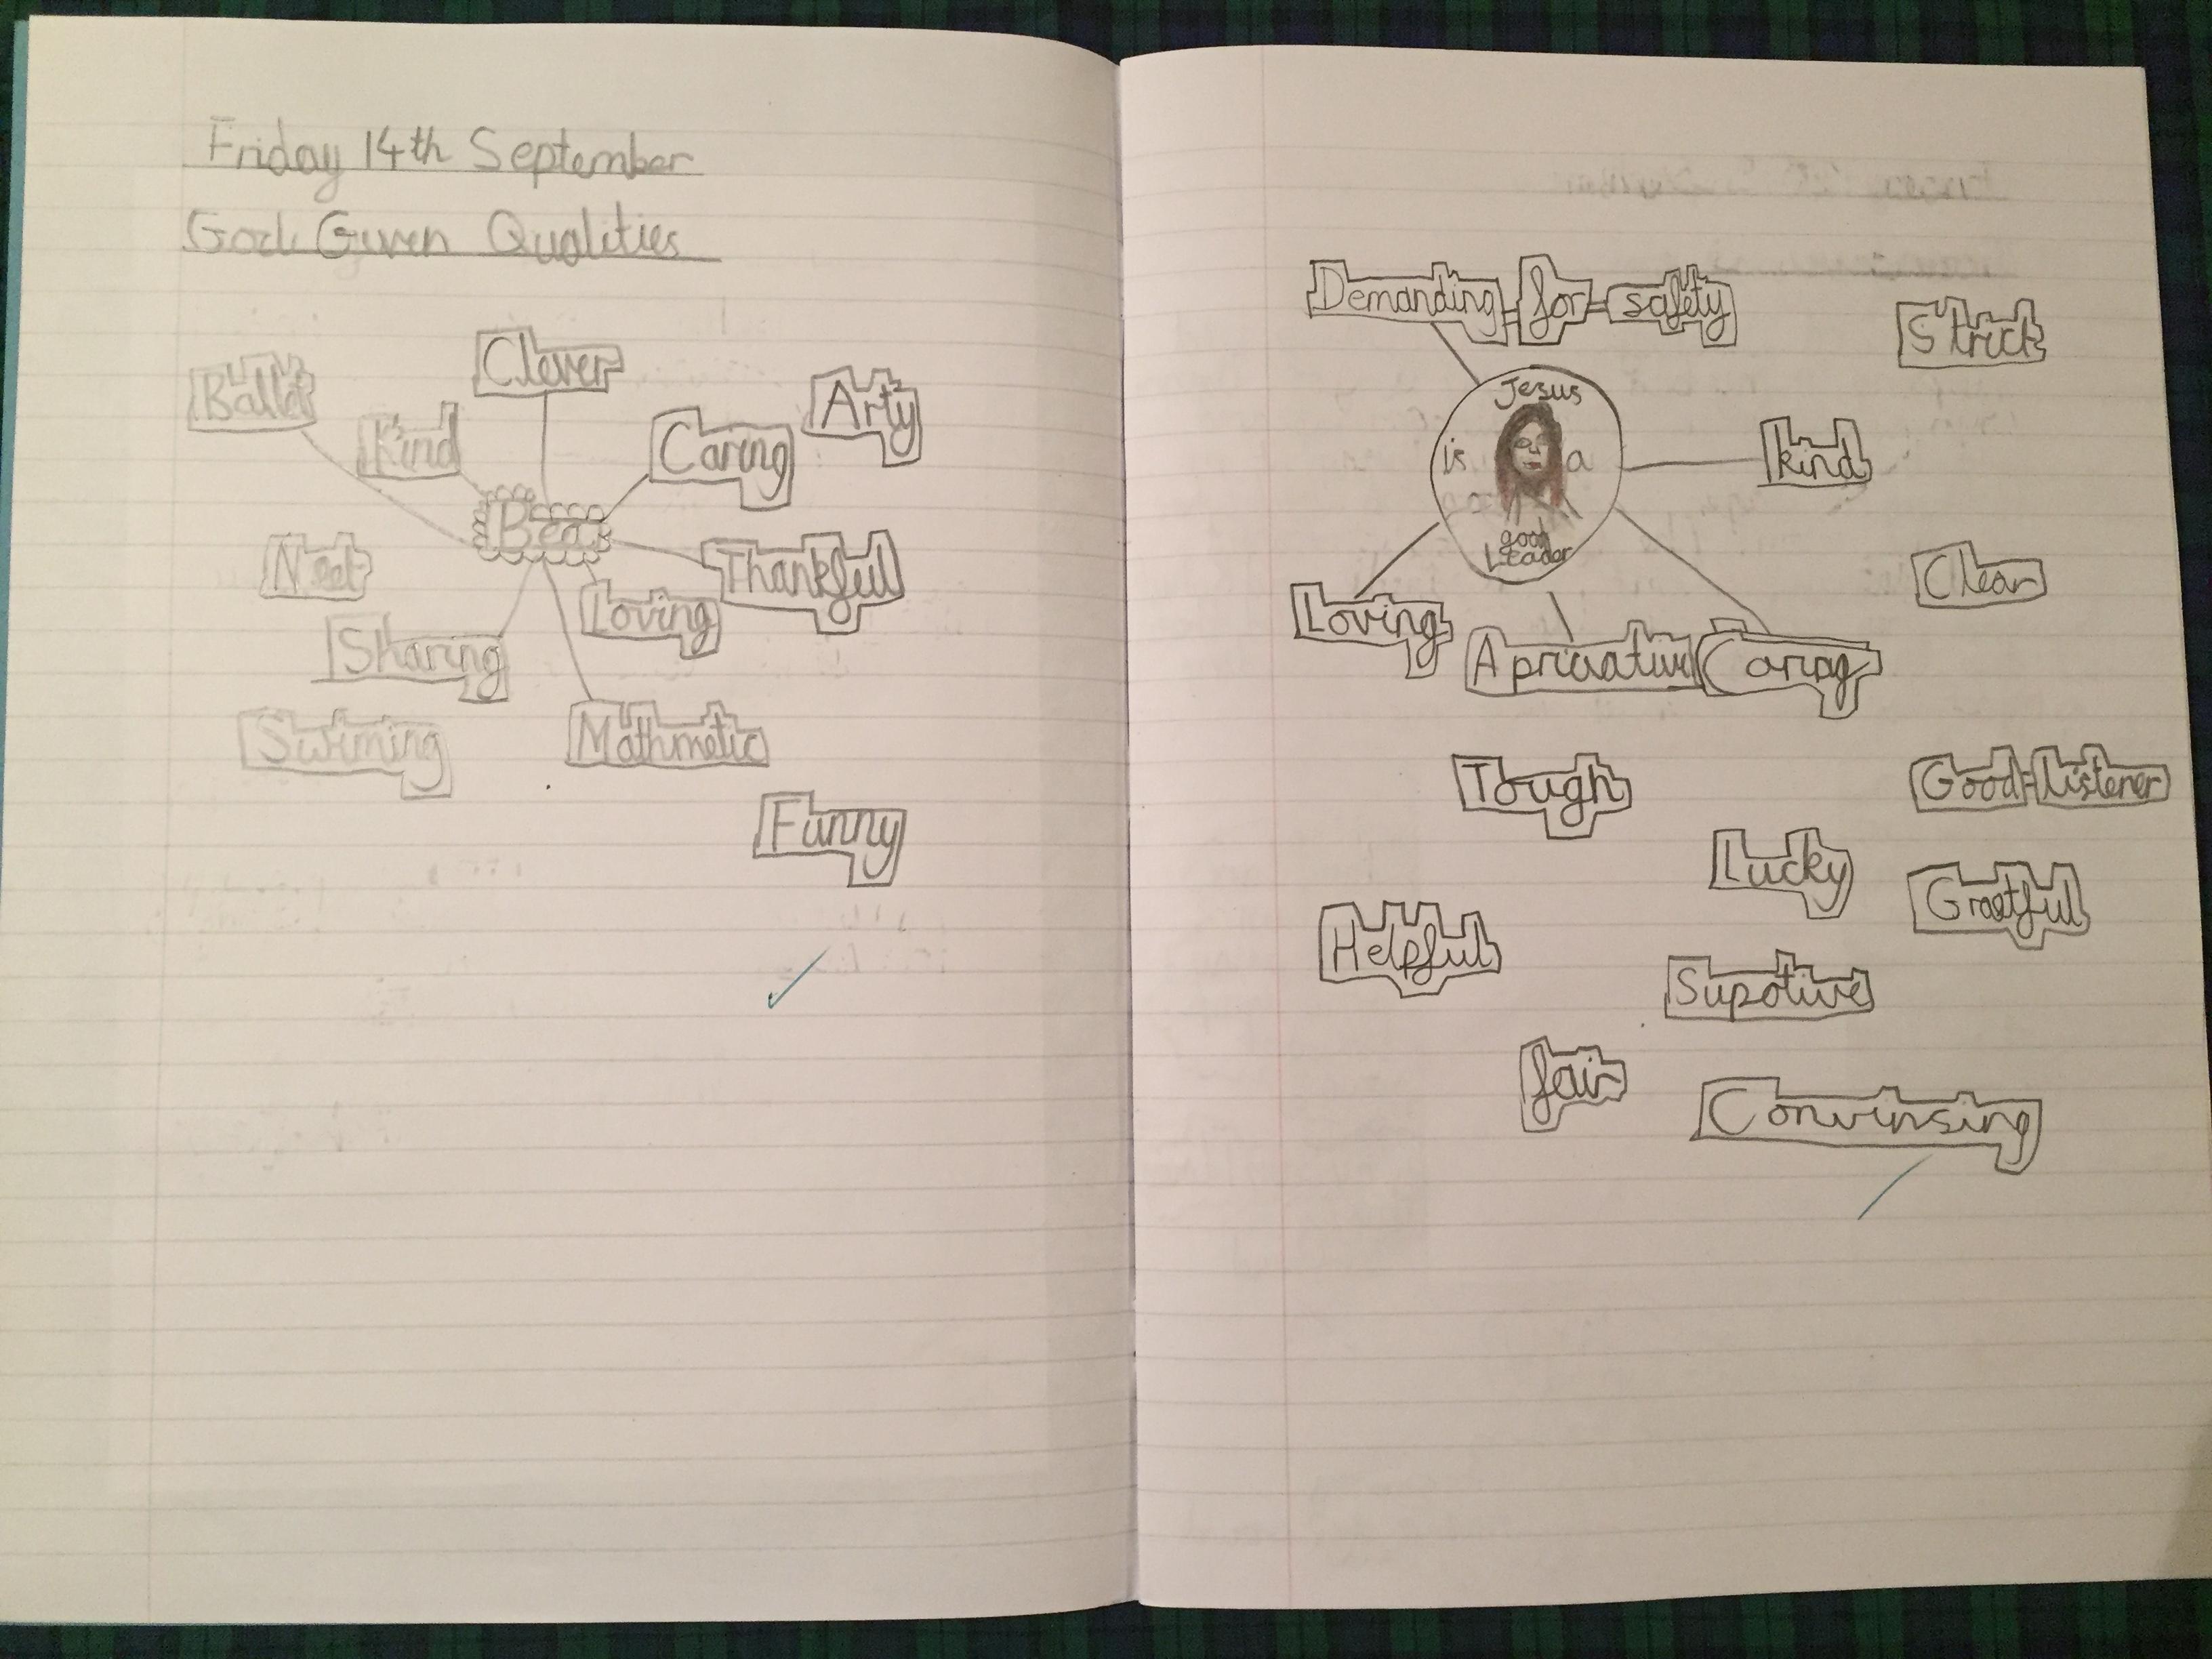 Friday 14th September
God Given Qualities
Ballet
Kind
Clever
Caring
Arty
Bea
Neet
Thankful
Sharing
Loving
Swiming
Mathmetic
Funny
Demanding-for-safety
Strict
Jesus
is a
good
Leader
kind
Clear
Loving
Apriciative
Caring
Tough
Good-listener
Lucky
Graetful
Helpful
Supotive
fair
Convinsing